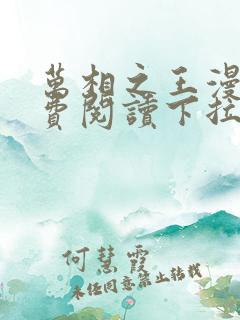 萬相之王漫
費閱讀下拉
何慧霞
未经同意禁止转载